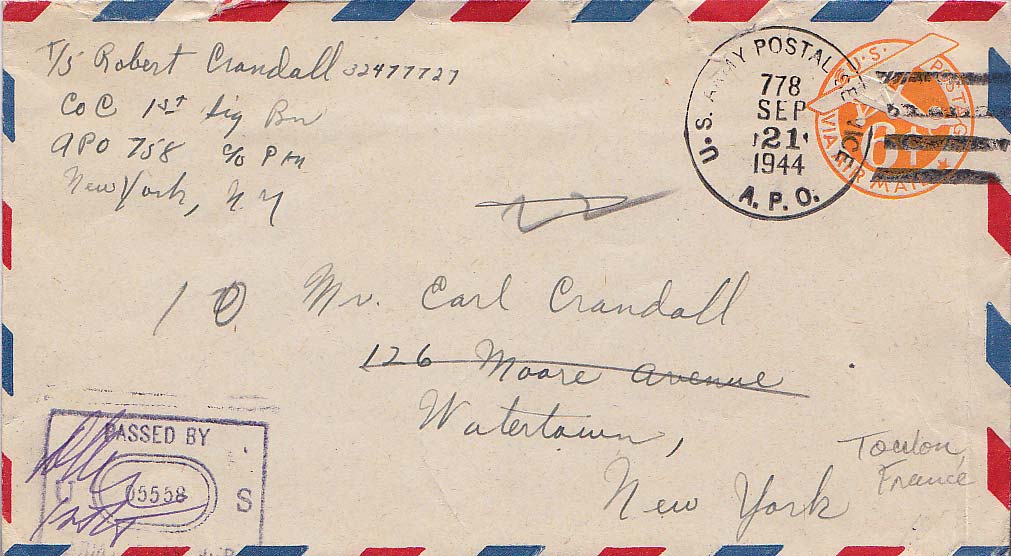 T/5 Robert Crandall 32477727
Co C 1st Sig Bn
APO 758 c/o P M
New York, N Y
U.S. ARMY POSTAL SERVICE
778
SEP
21
1944
A.P.O.
U.S. POSTAGE
VIA AIR MAIL
6¢
10
Mr. Carl Crandall
126 Moore Avenue
Watertown,
New York
Toulon,
France
PASSED BY
U 05558 S